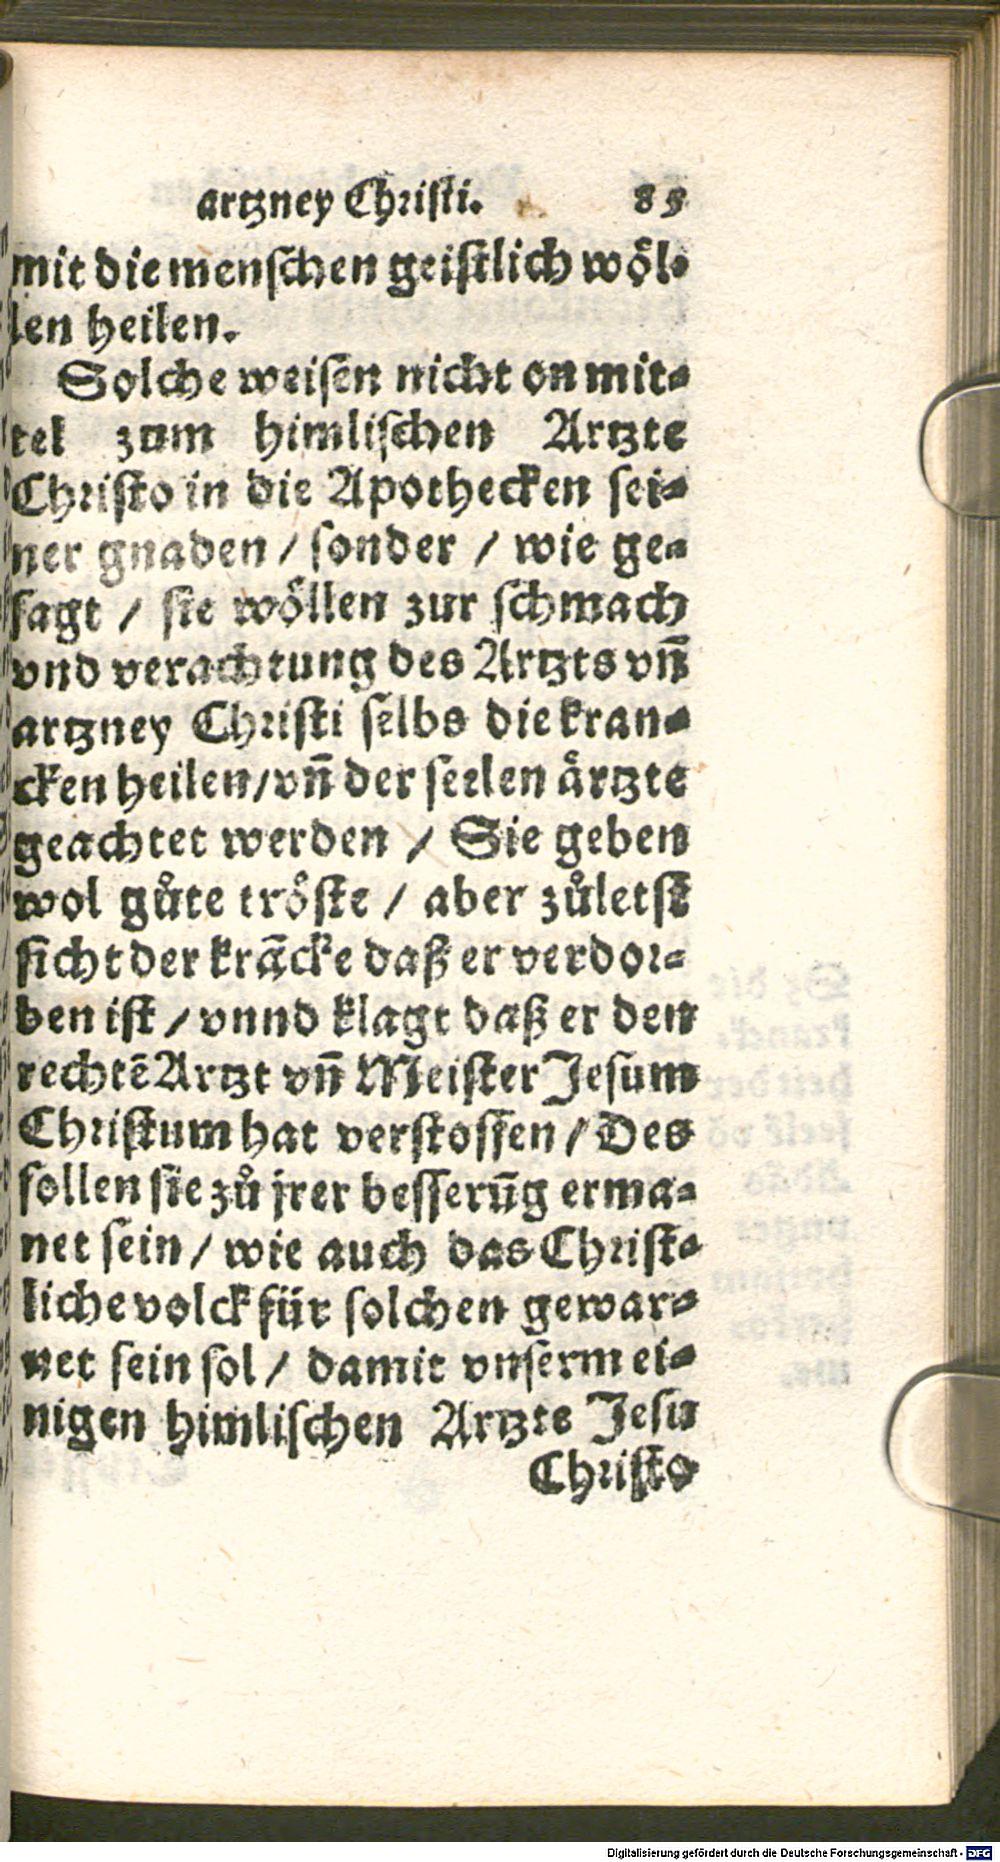 artzney Christi. 85
mit die menschen geistlich wöl-
len heilen.
Solche weisen nicht on mit-
tel zum himlischen Artzte
Christo in die Apothecken sei-
ner gnaden / sonder / wie ge-
sagt / sie wöllen zur schmach
vnd verachtung des Artzts vñ
artzney Christi selbs die kran-
cken heilen / vñ der seelen ärtzte
geachtet werden / Sie geben
wol gůte tröste / aber zůletst
sicht der krãcke daß er verdor-
ben ist / vnnd klagt daß er den
rechtẽ Artzt vñ Meister Jesum
Christum hat verstossen / Des
sollen sie zů jrer besserũg erma-
net sein / wie auch das Christ-
liche volck für solchen gewar-
net sein sol / damit vnserm ei-
nigen himlischen Artzte Jesu
Christo
Digitalisierung gefördert durch die Deutsche Forschungsgemeinschaft - DFG